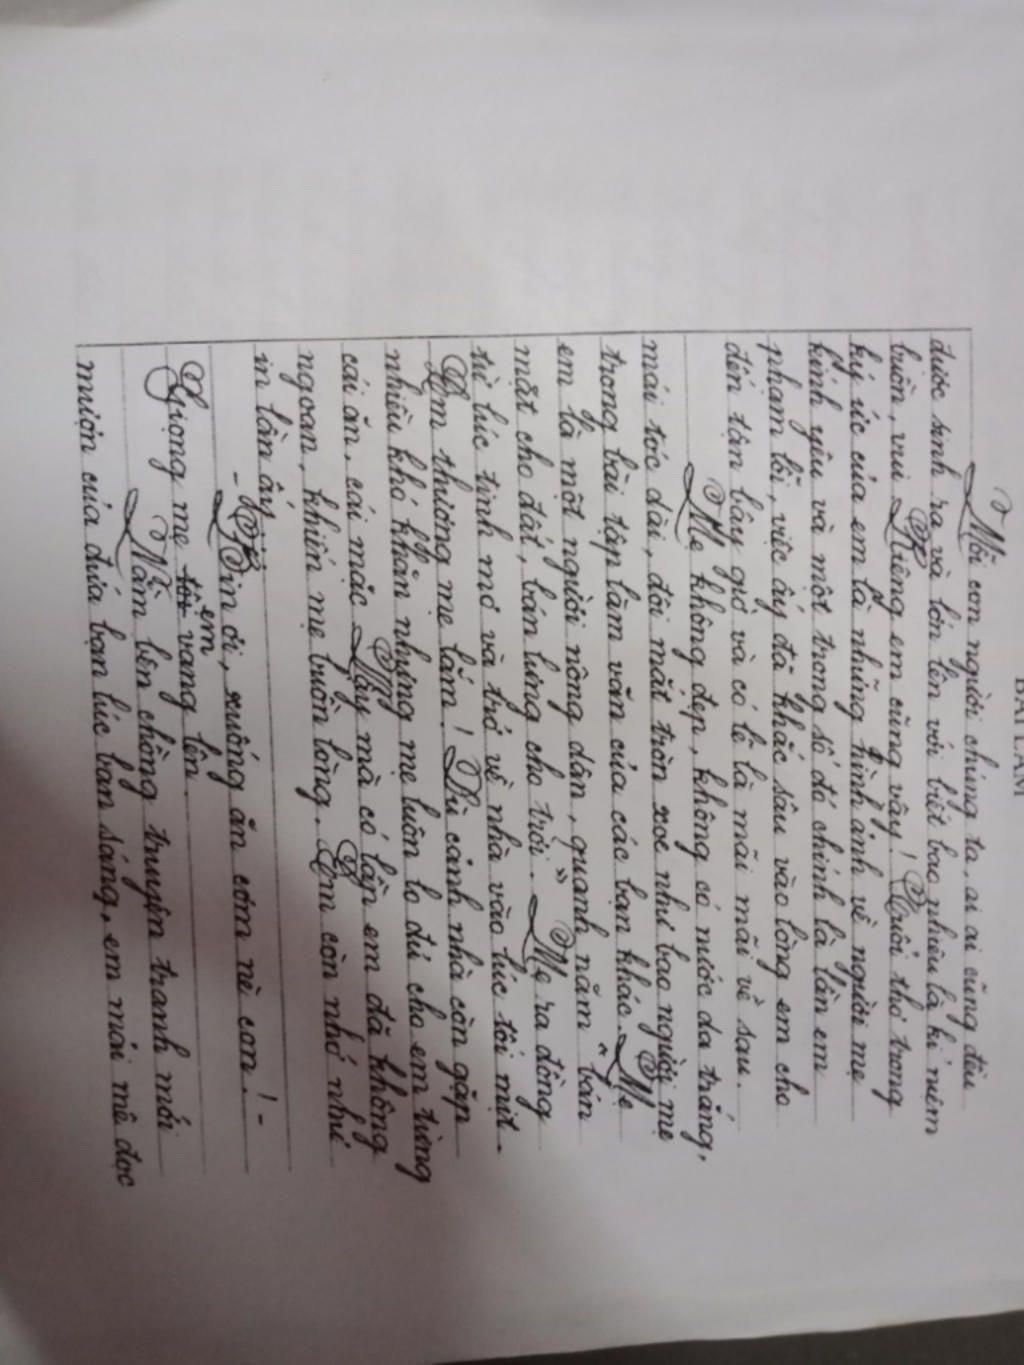 BÀI LÀM
Mỗi con người chúng ta, ai ai cũng đều
được sinh ra và lớn lên với biết bao nhiêu là kỉ niệm
buồn, vui. Riêng em cũng vậy! Tuổi thơ trong
ký ức của em là những hình ảnh về người mẹ
kính yêu và một trong số đó chính là lần em
phạm lỗi, việc ấy đã khắc sâu vào lòng em cho
đến tận bây giờ và có lẽ là mãi mãi về sau.
Mẹ không đẹp, không có nước da trắng,
mái tóc dài, đôi mắt tròn xoe như bao người mẹ
trong bài tập làm văn của các bạn khác. Mẹ
em là một người nông dân, quanh năm "bán
mặt cho đất, bán lưng cho trời". Mẹ ra đồng
từ lúc tinh mơ và trở về nhà vào lúc tối mịt.
Em thương mẹ lắm! Dù cảnh nhà còn gặp
nhiều khó khăn nhưng mẹ luôn lo đủ cho em từng
cái ăn, cái mặc. Vậy mà có lần em đã không
ngoan, khiến mẹ buồn lòng. Em còn nhớ như
in lần ấy...
- Bin ơi, xuống ăn cơm nè con! -
Giọng mẹ tôi em vang lên.
Nằm bên chồng truyện tranh mới
mượn của đứa bạn lúc ban sáng, em mải mê đọc